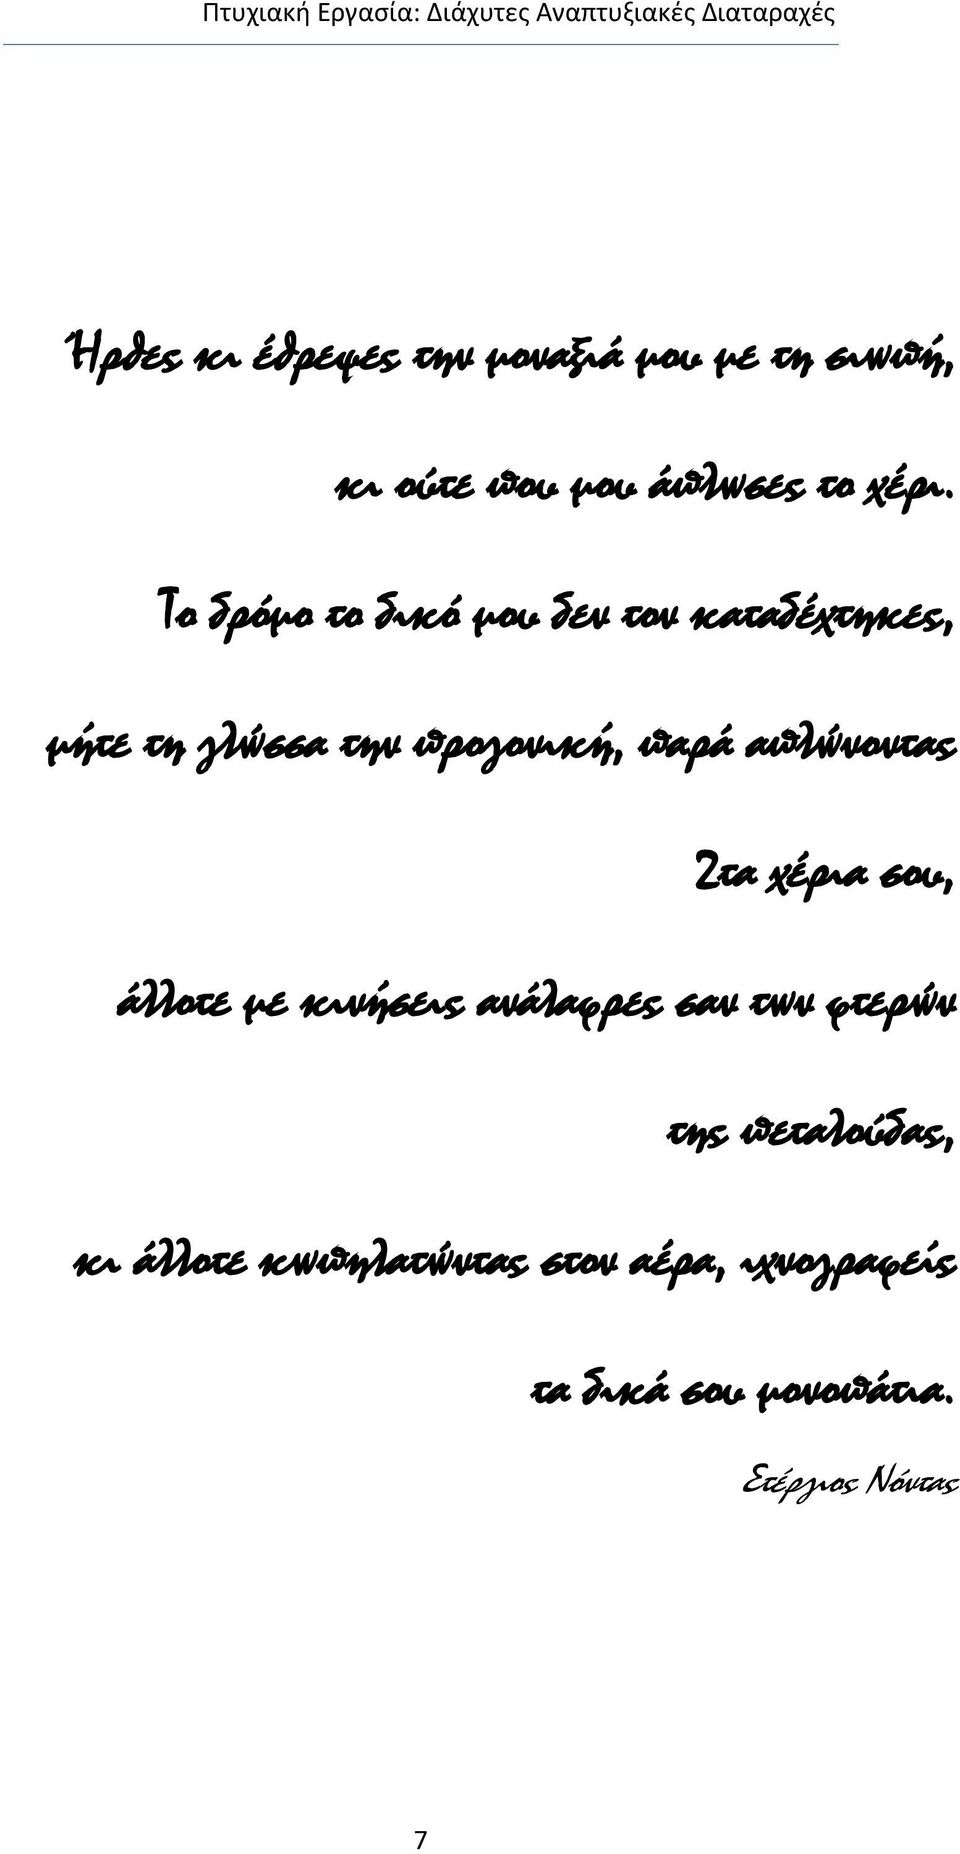 Πτυχιακή Εργασία: Διάχυτες Αναπτυξιακές Διαταραχές
Ήρθες κι έθρεψες την μοναξιά μου με τη σιωπή,
κι ούτε που μου άπλωσες το χέρι.
Το δρόμο το δικό μου δεν τον καταδέχτηκες,
μήτε τη γλώσσα την προγονική, παρά απλώνοντας
2τα χέρια σου,
άλλοτε με κινήσεις ανάλαφρες σαν των φτερών
της πεταλούδας,
κι άλλοτε κωπηλατώντας στον αέρα, ιχνογραφείς
τα δικά σου μονοπάτια.
Στέργιος Νόντας
7